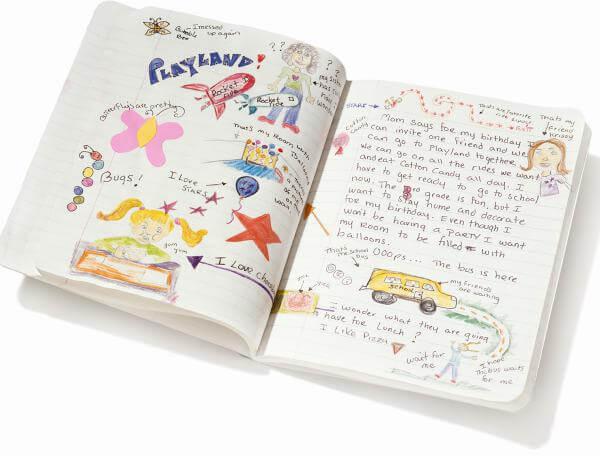 I messed
up again
Bumble
Bee
PLAYLAND!
? ?
? ?
my sis
Rocket
ride
Rocket
ride
Butterflys are pretty
that's my Room with
Balloons
Bugs!
I Love
STARS
yum
yum
I Love Choco
START
that's my favorite
END
That's my
friend
Krissy
Cotton
Candy
Mom says for my birthday I
can invite one friend and we
can go to Playland together.
We can go on all the rides we want
and eat Cotton Candy all day. I
have to get ready to go to school
now. The 3rd grade is fun, but I
want to stay home and decorate
for my birthday. Even though I
wont be having a PARTY I want
my Room to be filled with
balloons.
OOOPS... The bus is here
that's the school
Bus
School
my friends
are waiting
I wonder what they are going
to have for Lunch?
I Like Pizza
wait for
me
I hope
the bus waits
for me